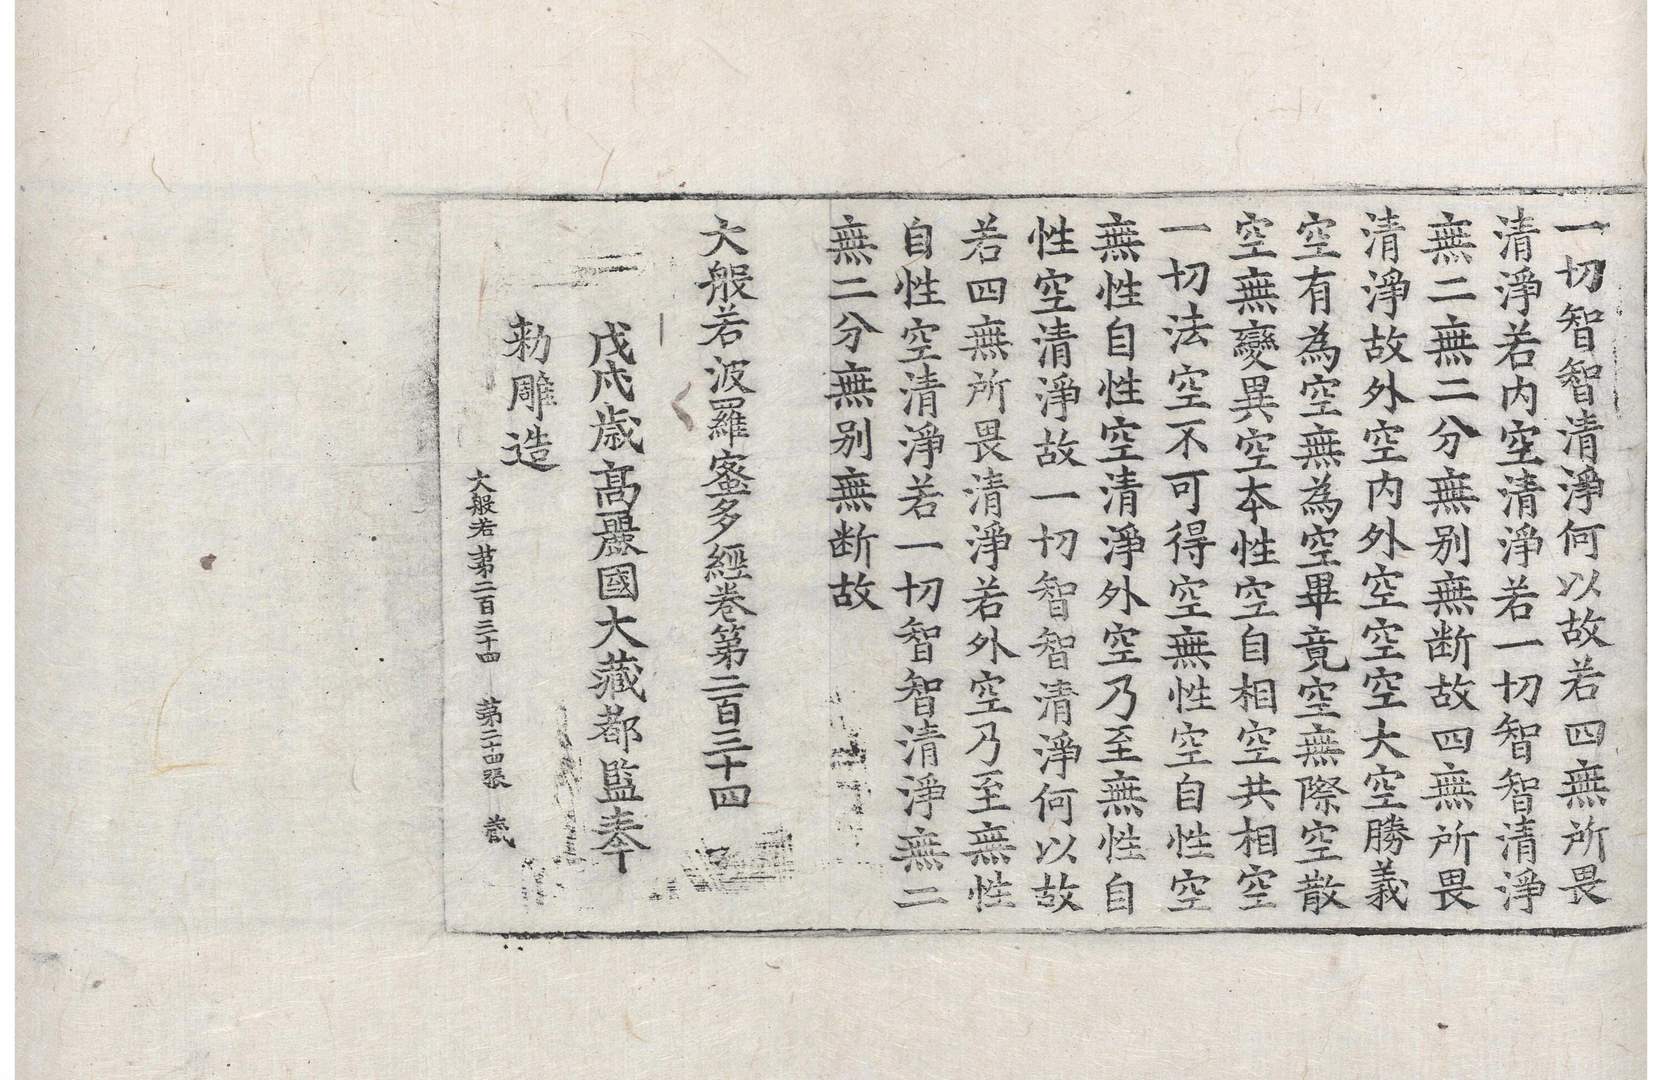 一切智智清淨何以故若四無所畏
清淨若内空清淨若一切智智清淨
無二無二分無别無断故四無所畏
清淨故外空内外空空空大空勝義
空有為空無為空畢竟空無際空散
空無變異空本性空自相空共相空
一切法空不可得空無性空自性空
無性自性空清淨外空乃至無性自
性空清淨故一切智智清淨何以故
若四無所畏清淨若外空乃至無性
自性空清淨若一切智智清淨無二
無二分無别無断故
大般若波羅蜜多經卷第二百三十四
戊戌歲髙麗國大藏都監奉
勑雕造
大般若第二百三十四 第二十四張